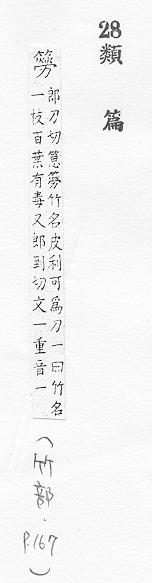 28 類篇
簩
郎刀切䈡簩竹名皮利可爲刀一曰竹名
一枝百葉有毒又郎到切文一重音一
(竹部.P.167)